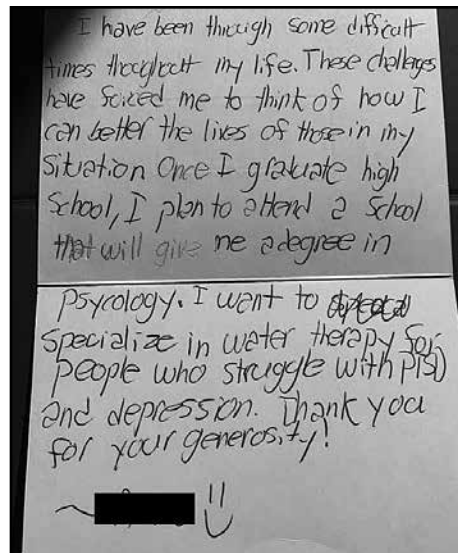 I have been through some difficult
times thoughout my life. These challenges
have forced me to think of how I
can better the lives of those in my
situation Once I graduate high
school, I plan to attend a school
that will give me a degree in
psycology. I want to
specialize in water therapy for
people who struggle with PTSD
and depression. Thank you
for your generosity!